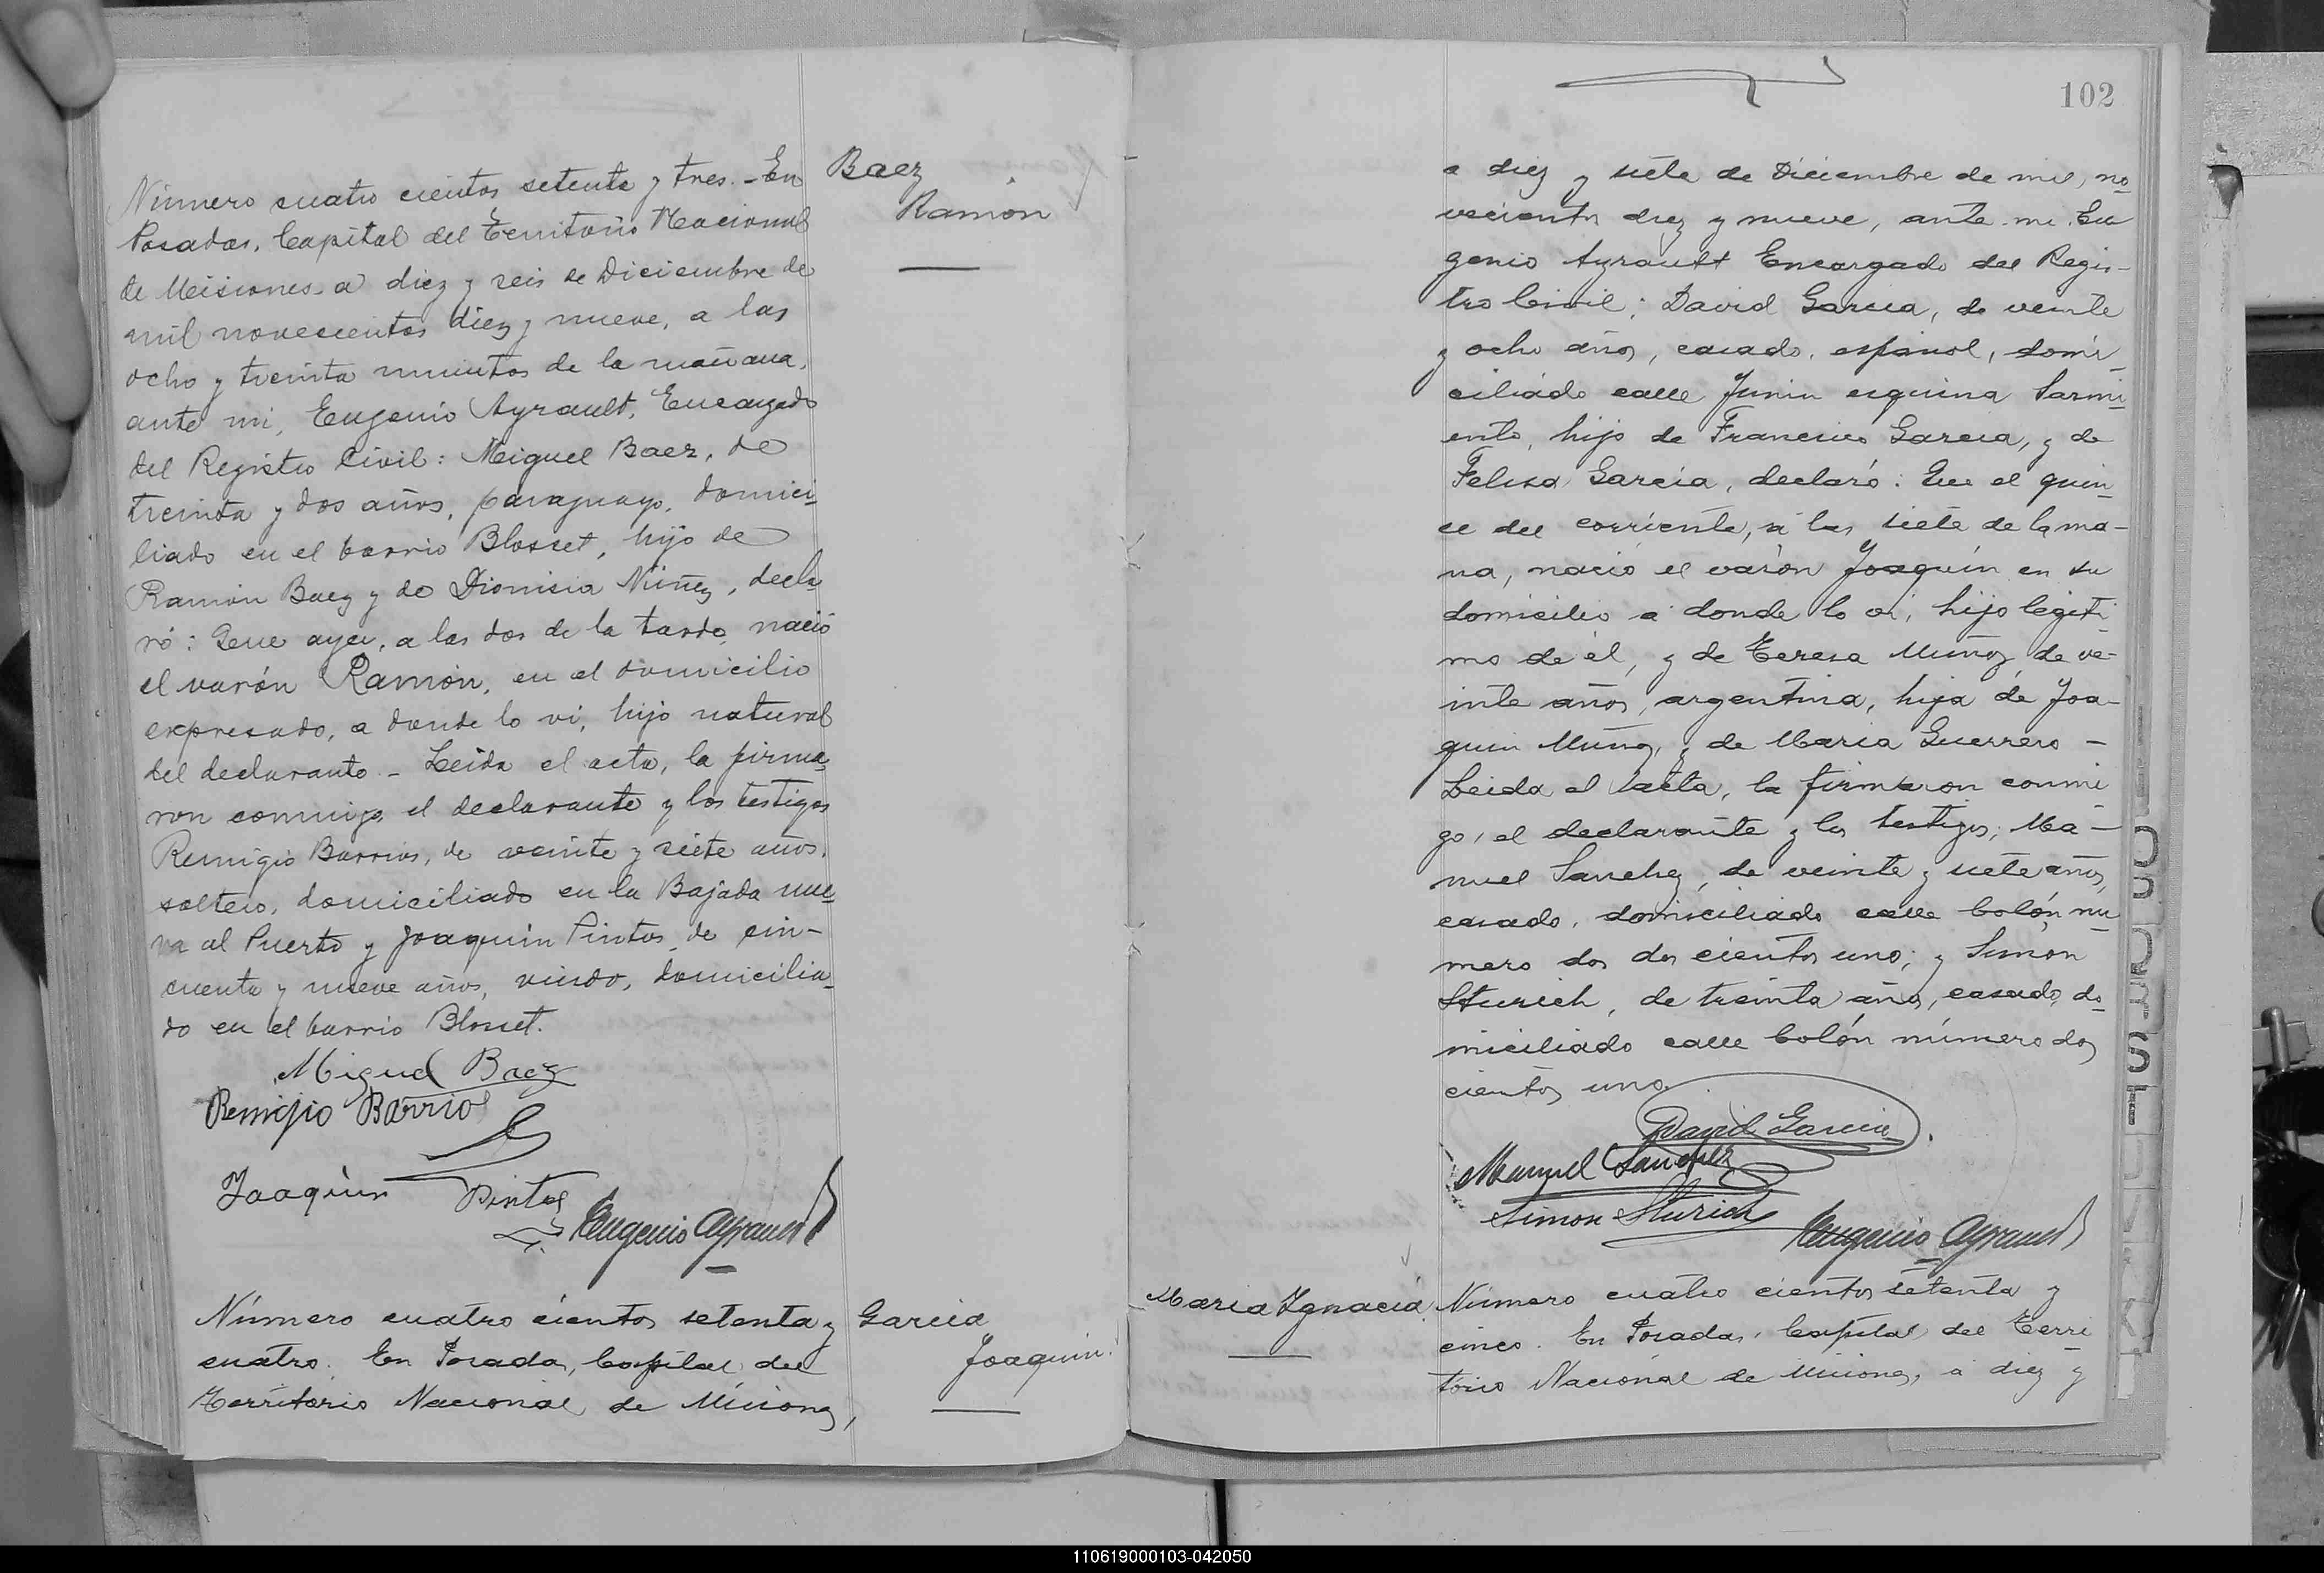 Número cuatro cientos setenta y tres. - En
Posadas, Capital del Territorio Nacional
de Misiones a diez y seis de Diciembre de
mil novescientos diez y nueve, a las
ocho y treinta minutos de la mañana,
ante mi, Eugenio Ayrault, Encargado
del Registro Civil: Miguel Baez, de
treinta y dos años, paraguayo, domici-
liado en el barrio Blosset, hijo de
Ramón Baez y de Dionisia Núñez, decla-
ró: Que ayer, a las dos de la tarde, nació
el varón Ramón, en el domicilio
expresado, a donde lo vi, hijo natural
del declarante - Leida el acta, la firma-
ron conmigo el declarante y los testigos
Remigio Barrios, de veinte y siete años,
soltero, domiciliado en la Bajada nue-
va al Puerto y Joaquín Pintos de cin-
cuenta y nueve años, viudo, domicilia-
do en el barrio Blosset.
Miguel Baez
Remijio Barrios
Joaquin Pintos
Eugenio Ayrault
Baez
Ramón
Número cuatro cientos setenta y
cuatro. En Posadas, Capital del
Territorio Nacional de Misiones,
García
Joaquin.
102
a diez y siete de Diciembre de mil, no-
vecientos diez y nueve, ante mi Eu
genio Ayrault Encargado del Regis-
tro Civil: David Garcia, de veinte
y ocho años, casado, español, domi-
ciliádo calle Junin esquina Sarmi-
ento, hijo de Francisco Garcia, y de
Felisa García, declaró: Que el quin-
ce del corriente, á las siete de la ma-
na, nació el varón Joaquín en su
domicilio a donde lo vi, hijo legiti-
mo de él, y de Teresa Muñoz de ve-
inte años, argentina, hija de Joa-
quin Muñoz, y de Maria Guerrero -
Leida el acta, la firmaron conmi-
go, el declarante y los testigos, Ma-
nuel Sanchez, de veinte y siete años,
casado, domiciliado calle Colón nu-
mero dos dos cientos uno; y Simón
Sturich, de treinta años, casado, do-
miciliado calle Colón número dos
cientos uno
David Garcia
Manuel Sanchez
Simon Sturich
Eugenio Ayrault
Maria Ignacia
Número cuatro cientos setenta y
cinco. En Posadas, Capital del Terri-
torio Nacional de Misiones, á diez y
110619000103-042050